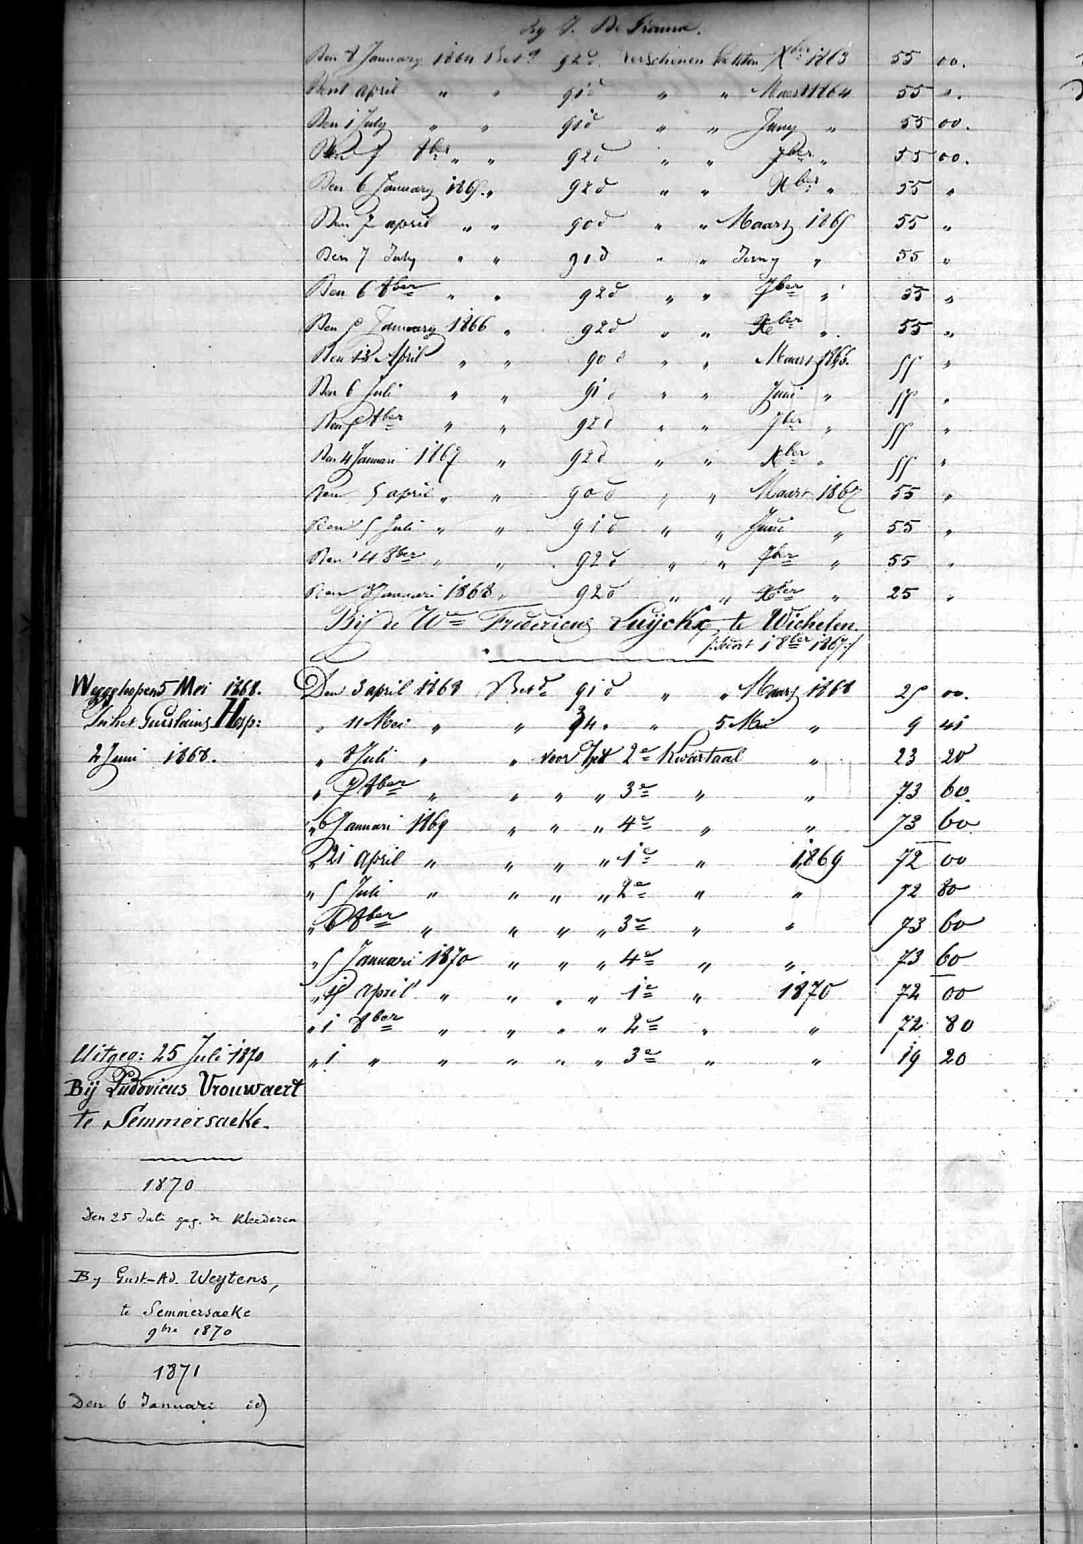 By J. De
Den 8 January 1864 Bet. 92 d. verschenen Xber 1863 55 00.
Den 1 april " " 91 d " " Maart 1864 55 ".
Den 1 July " " 91 d " " Juny " 55 00.
Den 7 8ber " " 92 d " " 7ber " 55 00.
Den 6 January 1865 " 92 d " " Xber " 55 "
Den 7 april " " 90 d " " Maart 1865 55 "
Den 7 July " " 91 d " " Juny " 55 "
Den 6 8ber " " 92 d " " 7ber " 55 "
Den January 1866 " 92 d " " Xber " 55 "
Den April " " 90 d " " Maart 1866. 55 "
Den 6 Juli " " 91 d " " Juni " 55 "
Den 8ber " " 92 d " " 7ber " 55 "
Den 4 Januari 1867 " 92 d " " Xber " 55 "
Den 5 april " " 90 d " " Maart 1867 55 "
Den 5 Juli " " 91 d " " Juni " 55 "
Den 4 8ber " " 92 d " " 7ber " 55 "
Den 8 Januari 1868 " 92 d " " Xber " 25 "
Bij de We Fredericus Luyckx, te Wichelen.
18ber 1867
Weggeloopen 5 Mei 1868. Den 3 april 1868 Betd 91 d " " Maart 1868 25 00.
In het Guislains Hosp: " 11 Mei " " 34 " 5 Mei " 9 41
2 Juni 1868. " 8 Juli " " voor het 2e Kwartaal " 23 20
" 7 8ber " " " " 3e " " 73 60.
" 6 Januari 1869 " " " 4e " " 73 60
" 21 april " " " " 1e " 1869 72 00
" 5 Juli " " " " 2e " " 72 80
" 6 8ber " " " " 3e " " 73 60
" 5 Januari 1870 " " " 4e " " 73 60
" april " " " " 1e " 1870 72 00
" 1 8ber " " " " 2e " " 72 80
" 1 " " " " " 3e " " 19 20
Uitgeg: 25 Juli 1870
Bij Ludovicus Vrouwaert
te Semmersaeke.
1870
Den 25 Juli geg. de Kleederen
By Gust-Ad. Weytens,
te Semmersaeke
9bre 1870
1871
Den 6 Januari id)